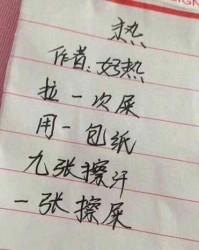 热
作者：好热
拉一次屎
用一包纸
九张擦汗
一张擦屎